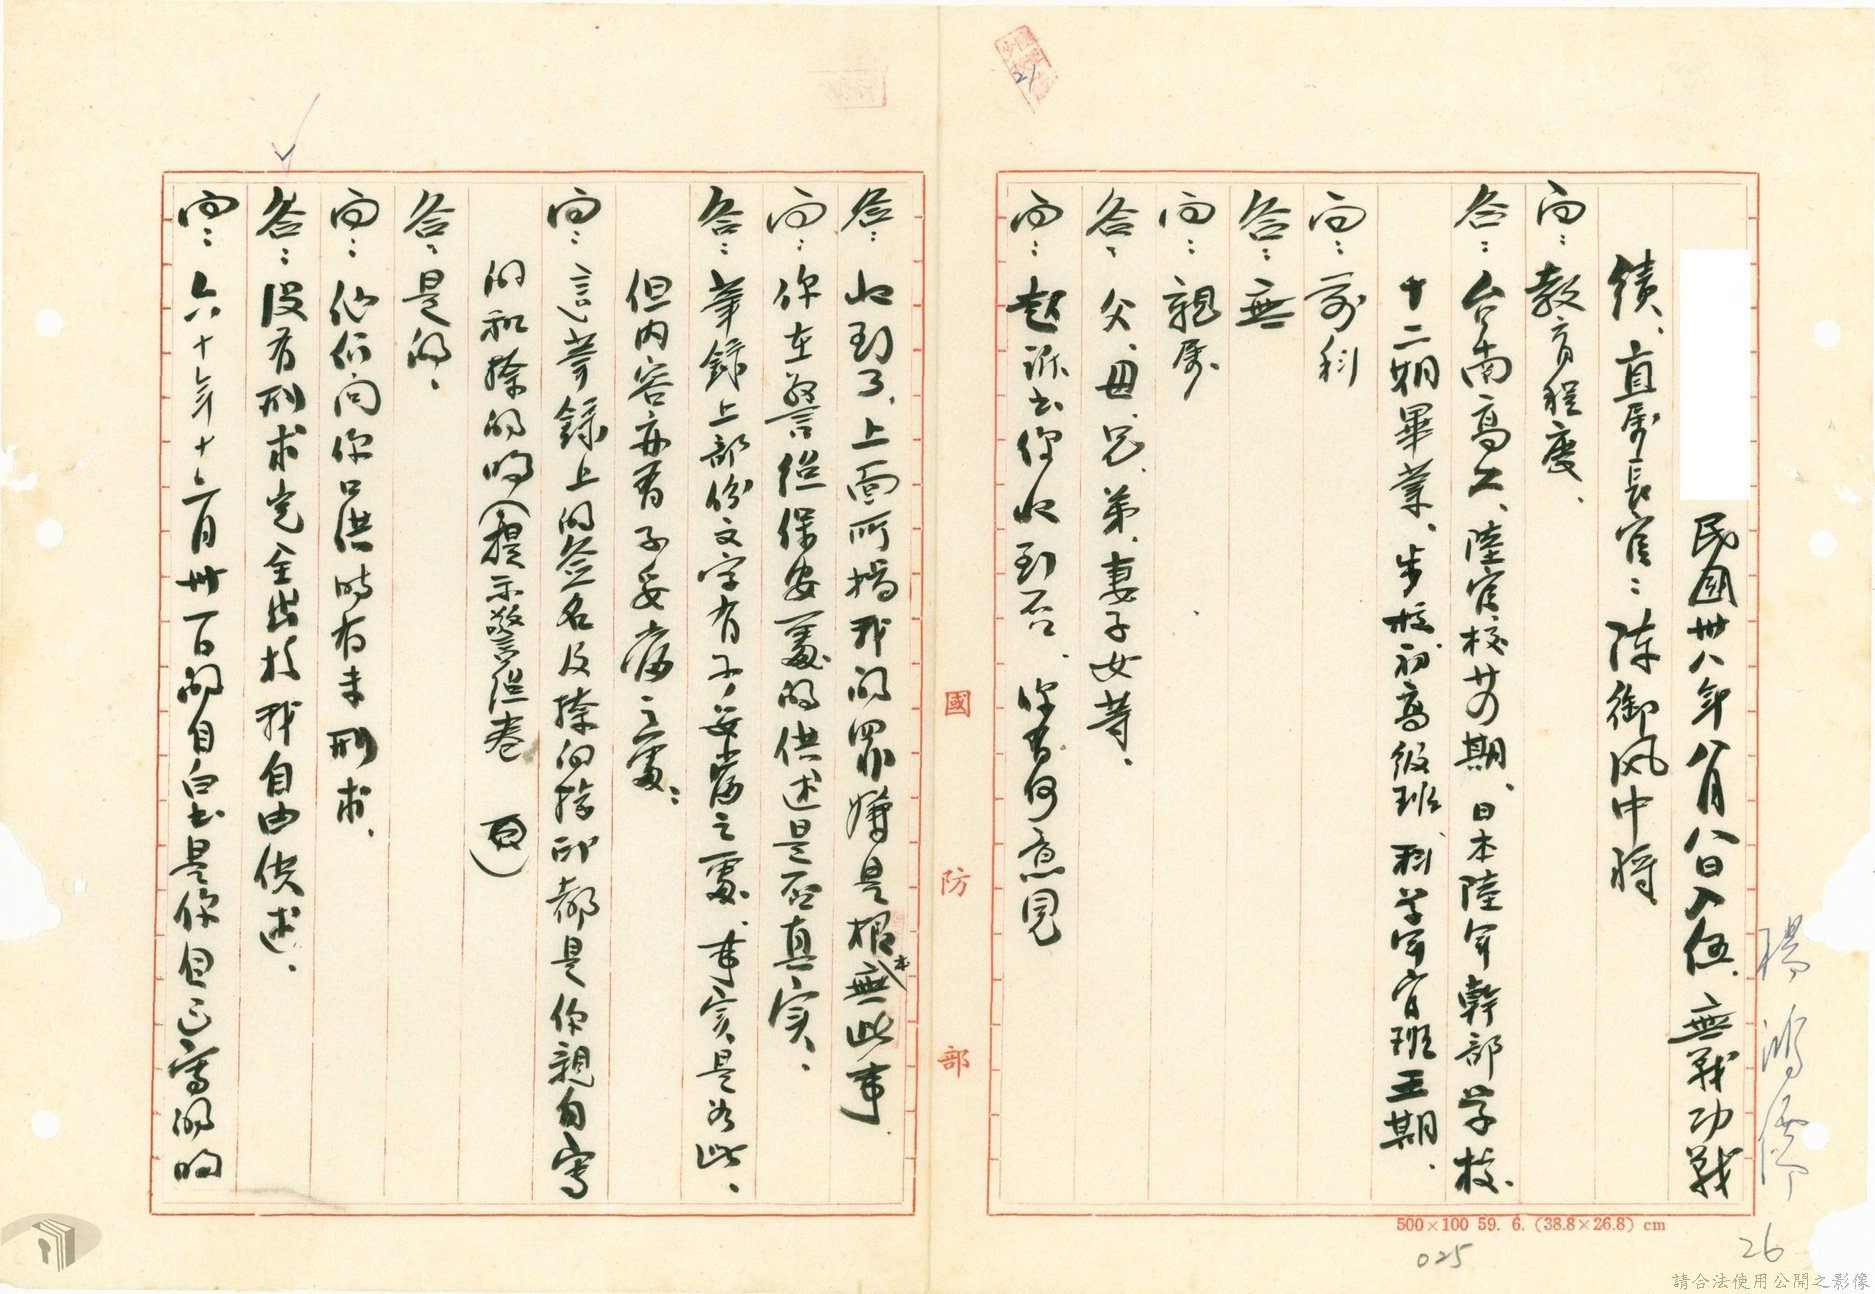 民國卅八年八月八日入伍、無戰功戰
績、直屬長官：陳御风中將
問：教育程度、
答：台南高工、陸官校廿四期、日本陸軍幹部学校
十二期畢業、步校初高級班、科学军官班五期、
問：前科
答：無
問：親屬
答：父、母、兄、弟、妻子女等、
問：起訴书你收到否、你有何意見
答：收到了、上面所指我的罪嫌是根本無此事、
問：你在警总保安處的供述是否真实、
答：筆録上部份文字有不妥當之處、事实是如此、
但内容亦有不妥當之處：
問：這筆録上的签名及捺的指印都是你親自寫
的和捺的嗎（提示警总卷 頁）
答：是的、
問：他们问你口供時有未刑求、
答：没有刑求完全出於我自由供述、
問：六十年十二月卅一日的自白书是你自己寫的嗎
國防部
楊鴻儒
500×100 59. 6. (38.8×26.8) cm
025
26
21
請合法使用公開之影像